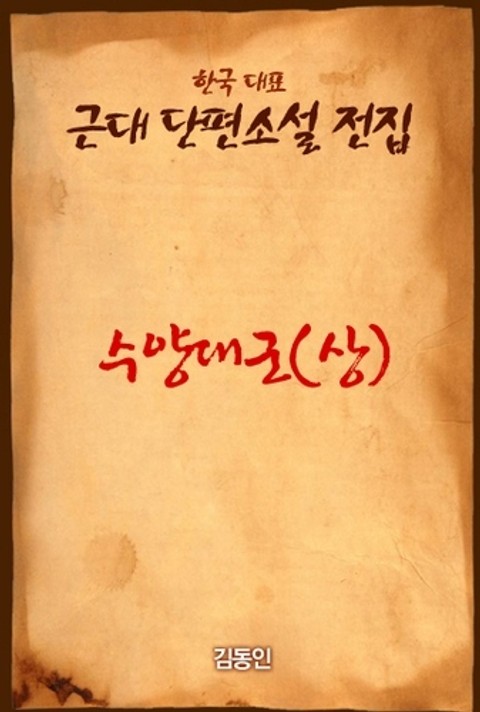 한국 대표
근대 단편소설 전집
수양대군(상)
김동인